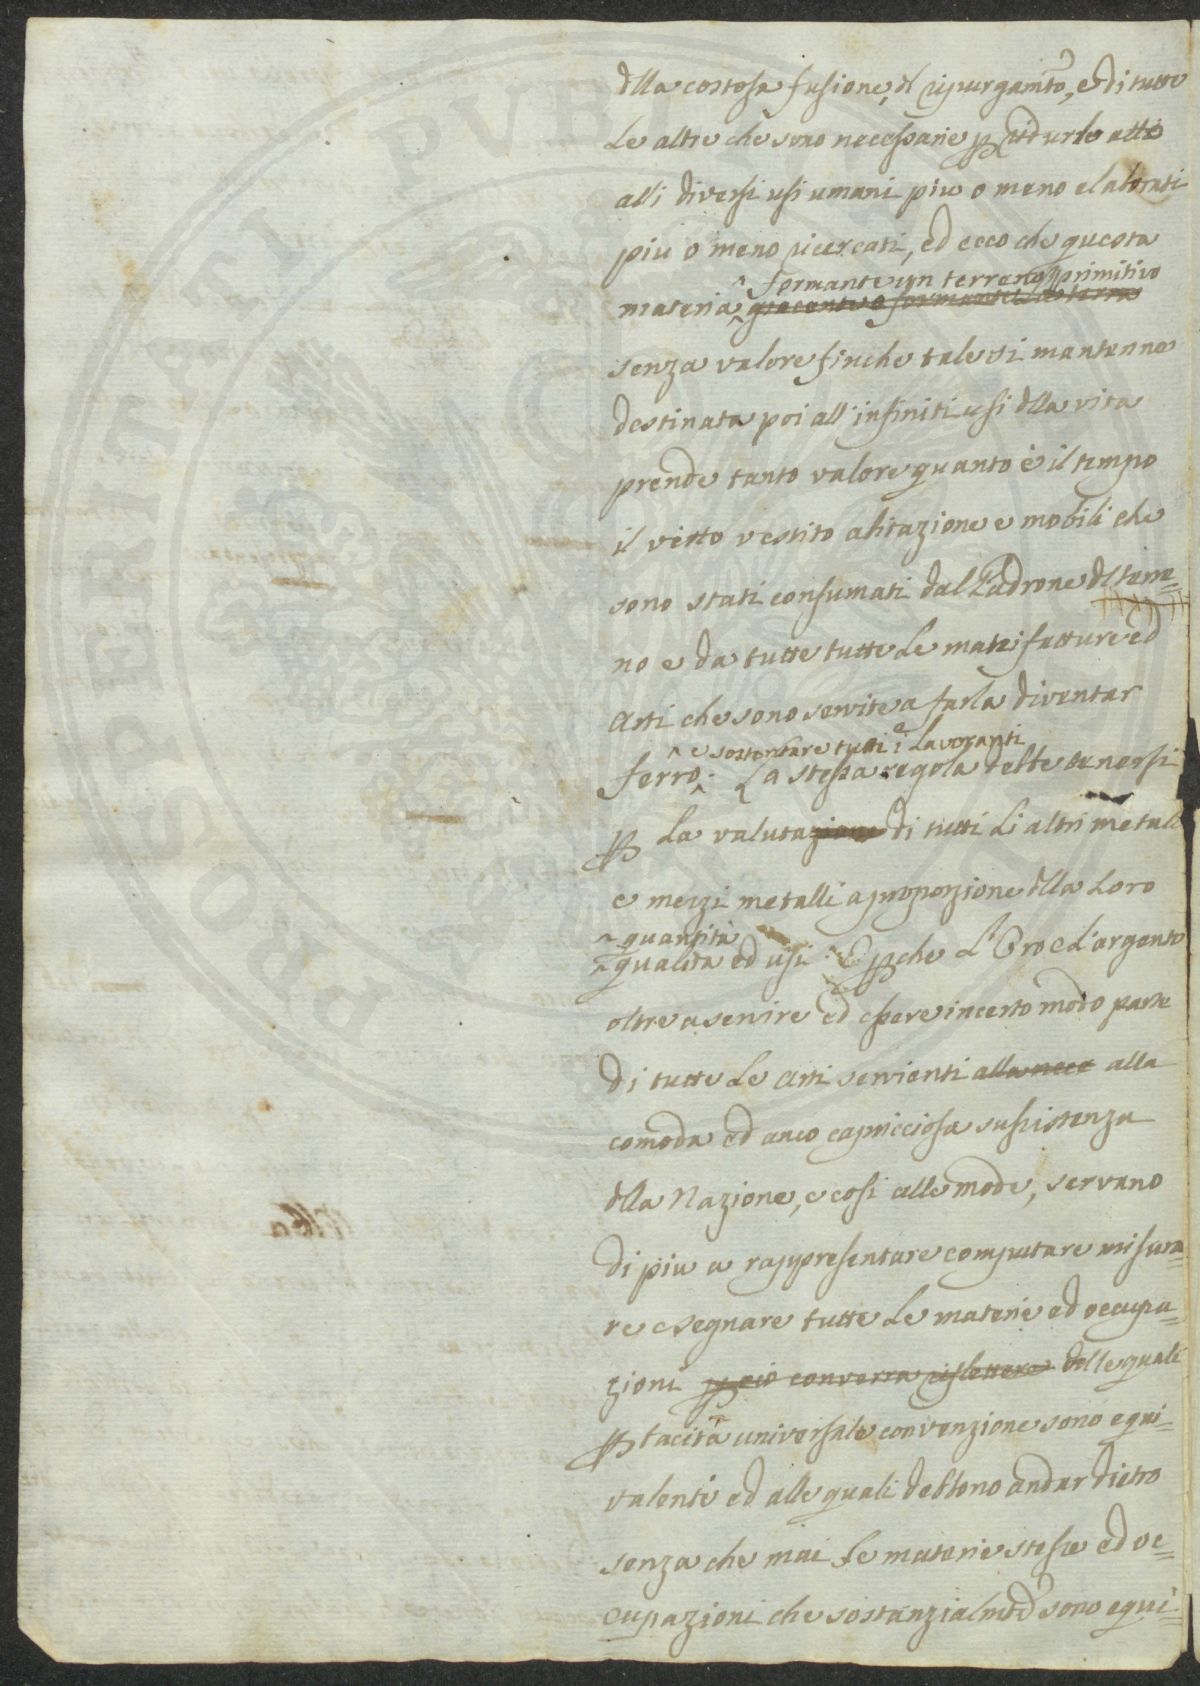 dlla costosa fusione, dl ripurgamto, e di tutte
le altre che sono necessarie p ridurle atte
alli diversi usi umani piu o meno elaborati
piu o meno ricercati, ed ecco che questa
formante un terreno primitivo
materia giacente e formante la terra
senza valore finche tale si mantenne
destinata poi all' infiniti usi dlla vita
prende tanto valore quanto è il tempo
il vitto vestito abitazione e mobili che
sono stati consumati dal Padrone dl terre=
no e da tutte tutte le manifatture ed
Arti che sono servite a farla diventar
e sostentare tutti i lavoranti
ferro. La stessa regola debbe tenersi
p la valutazione di tutti li altri metalli
e mezzi metalli a proporzione dlla loro
quantità
qualità ed usi. E pche l'Oro e l'argento
oltre a servire ed essere in certo modo parte
di tutte le Arti servienti alla nece alla
comoda ed anco capricciosa sussistenza
dlla Nazione, e cosi alle mode, servano
di piu a rappresentare computare misura=
re e segnare tutte le materie ed occupa=
zioni p cio converra riflettere delle quali
p tacita universale convenzione sono equi=
valenti ed alle quali debbono andar dietro
senza che mai le materie stesse ed oc=
cupazioni che sostanzialmte sono equi=